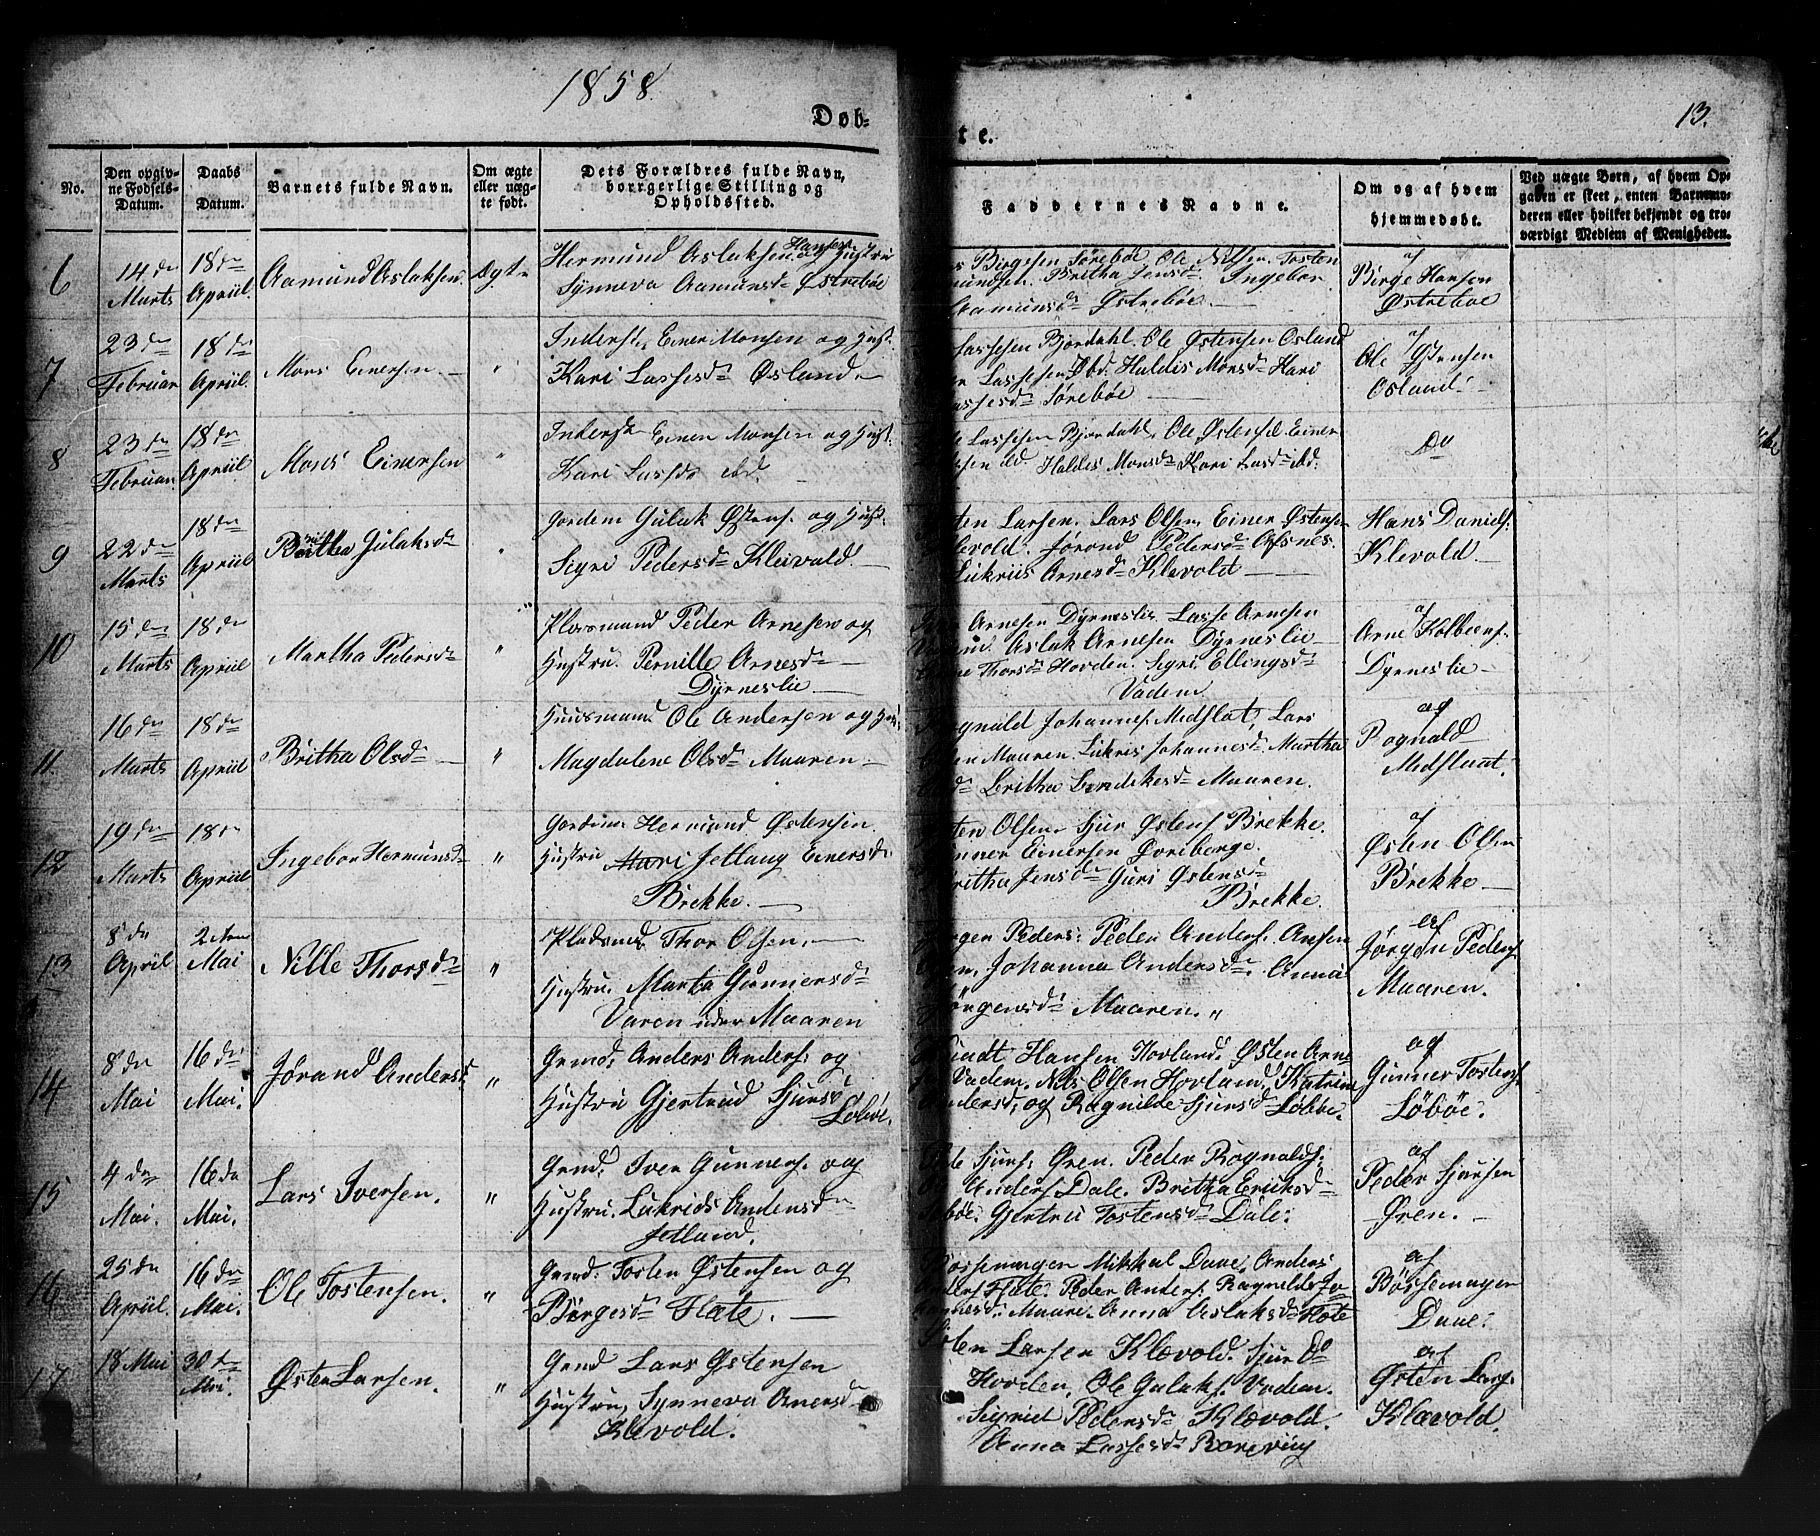 1858
Døb-
te.
13.
No.
Den opgiv-
ne Fødsels-
Datum.
Daabs
Datum.
Barnets fulde Navn.
Om ægte
eller uæg-
te født.
Dets Forældres fulde Navn,
borgerlige Stilling og
Opholdssted.
Faddernes Navne.
Om og af hvem
hjemmedøbt.
Ved uægte Børn, af hvem Op-
gaven er skeet, enten Barnemo-
deren eller hvilket bekjendt og tro-
værdigt Medlem af Menigheden.
6
14 de
Marts
18 de
Apriil
Aamund Aslaksen
Ægte
Hermund Aslaksen Hansen og Hustru
Synneva Aamundsd Østrebøe
Birgesen Sørebøe, Ole Nilsen, Tosten
mundsen, Britha Jensd Ingebor
Aamunsd Østrebøe
af
Birge Hansen
Østrebøe
7
23 de
Februar
18 de
Apriil
Mons Einersen
"
Inderst, Einer Monsen og Hust
Kari Lassesd Osland
Lassesen Bjordahl, Ole Østensen Osland
Lassesen ibd. Haldis Monsd Kari
Lassesd Sørebøe
af
Ole Østensen
Osland
8
23 de
Februar
18 de
Apriil
Mons Einersen
"
Inderst Einer Monsen og Hust
Kari Lassd ibd.
Lassesen Bjordahl, Ole Østensd Einer
ibd. Haldis Monsd Kari Lasd ibd.
Do
9
22 de
Marts
18 de
Apriil
Britha Gulaksd
"
Gordm Gulak Østens. og Hust
Sigri Pedersd Kleivold
ten Larsen. Lars Olsen, Einer Østensen
Klevold. Jørond Pedersd Ofsnes
Lukriis Arnesd Klevold
Hans Daniels.
Klevold
10
15 de
Marts
18 de
Apriil
Martha Pedersd
"
Pladsmand Peder Arnesen og
Hustru. Pernille Arnesd
Dyrneslie
Arnesen Dyrneslie Lasse Arnesen
Aslak Arnesen Dyrneslie
Thorsd Hovden. Sigri Ellingsd
Vadem
af
Arne Kolbeens.
Dyrneslie
11.
16 de
Marts
18 de
Apriil
Britha Olsd
"
Huusmand Ole Andersen og Hust.
Magdalene Olsd Maaren
Rognald Johannes. Midflat, Lars
Olsen Maaren. Lukris Johannesd Martha
Britha Bendikesd Maaren.
af
Rognald
Midflaat.
12
19 de
Marts
18 de
Apriil
Ingebor Hermunsd
"
Gordmn Hermund Østensen.
Hustru Mari Jetlaug Einersd
Brekke.
Østen Olsen. Sjur Østens Brekke.
Gunner Einersen
Britha Jensd Guri Østensd
Brekke.
af
Østen Olsen
Brekke
13
8 de
April
2 den
Mai
Nille Thorsd
"
Pladsmd. Thor Olsen,
Hustru. Marta Gunnersd
Varen under Maaren
Jørgen Peders. Peder Anders. Ansen
Johanna Andersd. Anna
Jørgensd Maaren.
af
Jørgen Peders.
Maaren.
14
8 de
Mai
16 de
Mai.
Jørand Andersd
"
Grmd. Anders Anders. og
Hustru Gjertrud Sjursd
Løbøe.
Hansen Hovland. Østen Arne
Vadem. Nils Olsen Hovland, Katrine
Andersd, og Ragnilde Sjursd Løbbe.
af
Gunner Tostens.
Løbøe.
15
4 de
Mai.
16 de
Mai.
Lars Iversen.
"
Grmd. Iver Gunners. og
Hustru. Lukrids Andersd
Jetland.
Ole Sjurs. Øren. Peder Rognalds.
Anders Dale. Britha Eriksd
Løbøe. Gjertru Tostensd Dale.
af
Peder Sjursen
Øren.
16
25 de
Apriil
16 de
Mai.
Ole Tostensen.
"
Grmd. Tosten Østensen og
Børgesd Flate.
Mikkal Daue, Anders
Anders Flate. Peder Anders. Ragnilde Jo
hannesd. Maare. Anna Aslaksd Flote
af
Bossemager
Daue.
17
18 Mai
30 te
Mai.
Østen Larsen.
"
Grmd Lars Østensen
Hustru, Synneva Anersd
Klevold.
Østen Larsen Klævold. Sjur
Hovden, Ole Gulaks. Vadem.
Sigrid Pedersd Klævold.
Anna Lassesd
af
Østen Lars.
Klævold